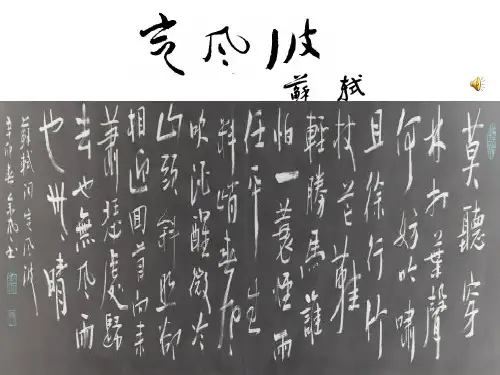 定风波
蘇軾
莫聽穿
林打葉聲
何妨吟嘯
且徐行竹
杖芒鞋
輕勝馬誰
怕一蓑煙雨
任平生
料峭春風
吹酒醒微冷
山頭斜照卻
相迎回首向來
蕭瑟處歸
去也無風雨
也無晴
蘇軾詞定风波
辛卯春